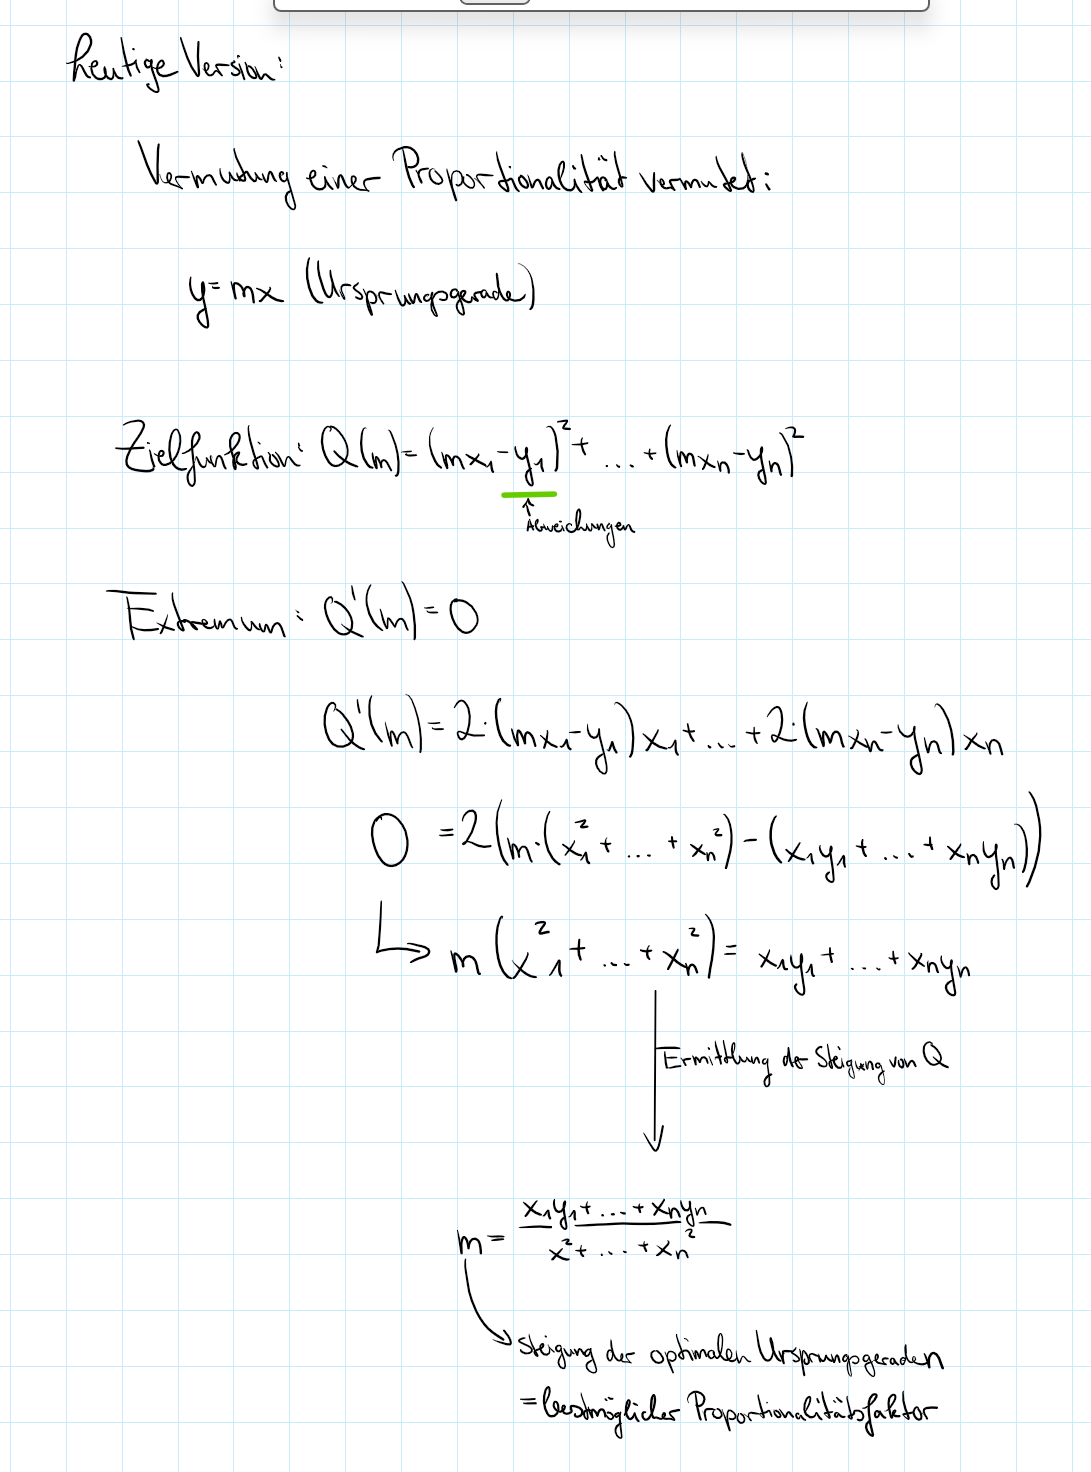 heutige Version:
Vermutung einer Proportionalität vermutet:
y=mx (Ursprungsgerade)
Zielfunktion: Q(m)=(mx₁-y₁)²+ ... +(mxn-yn)²
↑
Abweichungen
Extremum: Q'(m)=0
Q'(m)=2·(mx₁-y₁)x₁+...+2·(mxn-yn)xn
0 =2(m·(x₁²+ ... + xn²)-(x₁y₁+ ...+ xnyn))
↳ m(x²₁+ ...+xn²)= x₁y₁+ ...+xnyn
Ermittlung der Steigung von Q
m= (x₁y₁+...+xnyn)/(x²+ ... +xn²)
Steigung der optimalen Ursprungsgeraden
=bestmöglicher Proportionalitätsfaktor